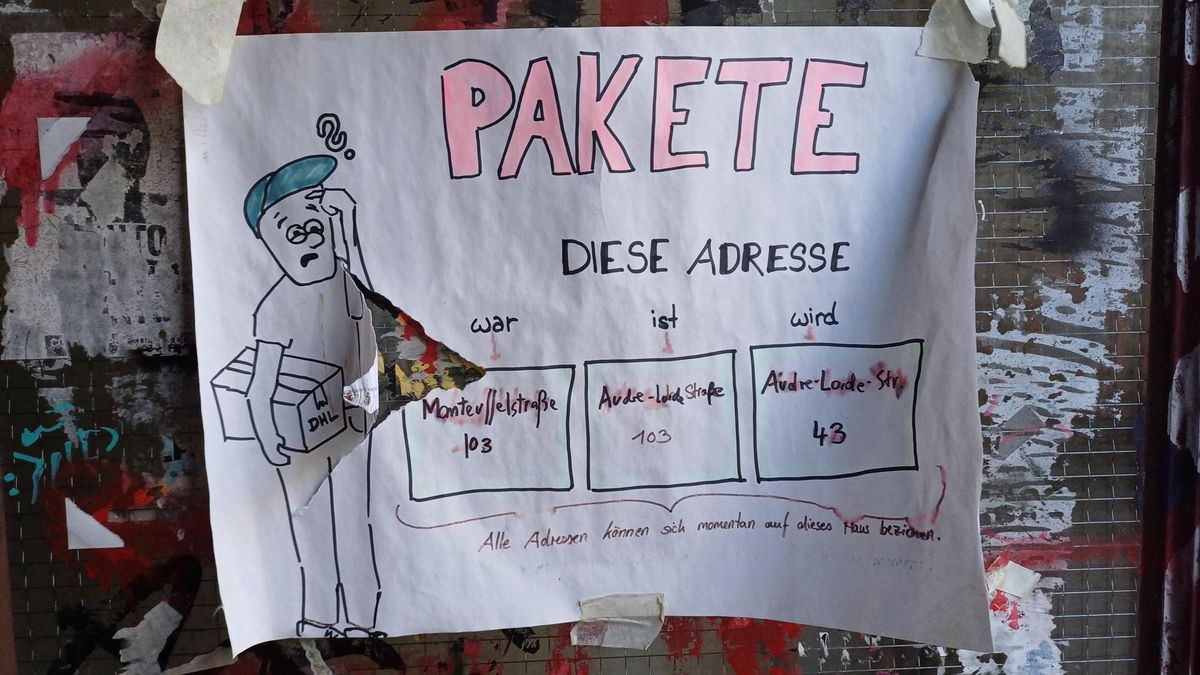 PAKETE
?
DIESE ADRESSE
war ist wird
Manteuffelstraße
103
Audre-Lorde Straße
103
Audre-Lorde-Str.
43
DHL
Alle Adressen können sich momentan auf dieses Haus beziehen.